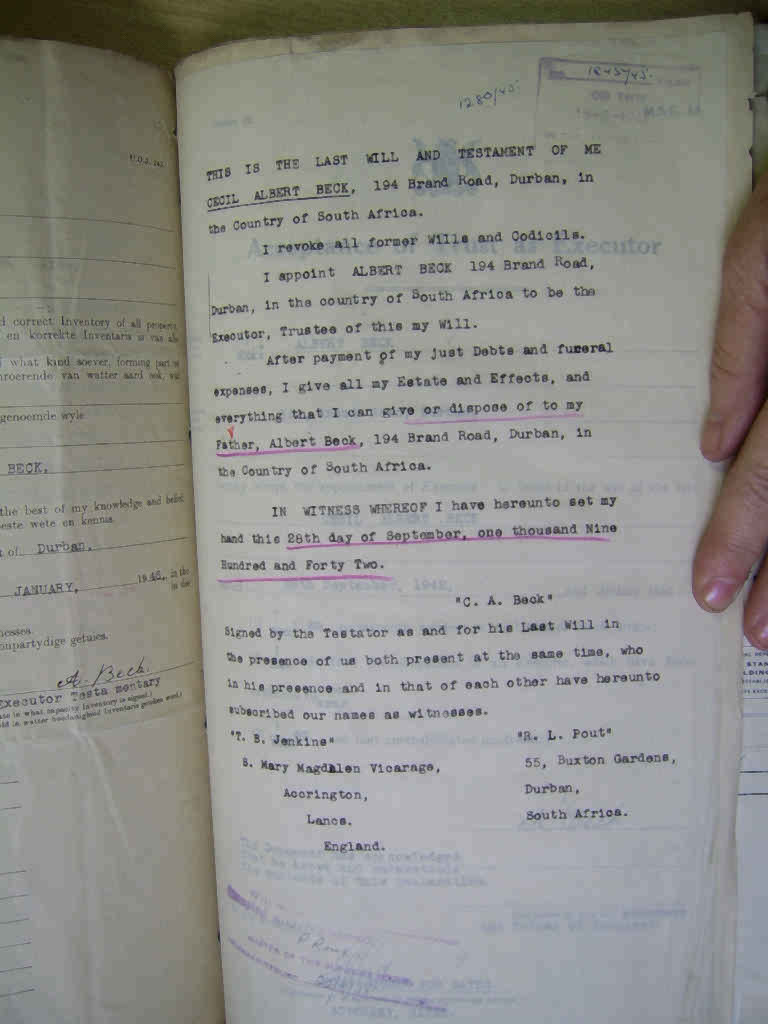 U.D.J. 243.
d correct Inventory of all property,
en korrekte Inventaris is van alle
what kind soever, forming part
hroerende van watter aard ook,
genoemde wyle
BECK,
the best of my knowledge and belief.
beste wete en kennis.
t of Durban,
JANUARY, 1945, in the
in die
onpartydige getuies.
A. Beck.
Executor Testamentary
1280/45.
1645/45.
THIS IS THE LAST WILL AND TESTAMENT OF ME
CECIL ALBERT BECK, 194 Brand Road, Durban, in
the Country of South Africa.
I revoke all former Wills and Codicils.
Acceptance of Trust as Executor
I appoint ALBERT BECK 194 Brand Road,
Durban, in the country of South Africa to be the
Executor, Trustee of this my Will.
After payment of my just Debts and funeral
expenses, I give all my Estate and Effects, and
everything that I can give or dispose of to my
Father, Albert Beck, 194 Brand Road, Durban, in
the Country of South Africa.
IN WITNESS WHEREOF I have hereunto set my
hand this 28th day of September, one thousand Nine
Hundred and Forty Two.
"C. A. Beck"
Signed by the Testator as and for his Last Will in
the presence of us both present at the same time, who
in his presence and in that of each other have hereunto
subscribed our names as witnesses.
"T. B. Jenkins" "R. L. Pout"
S. Mary Magdalen Vicarage, 55, Buxton Gardens,
Accrington, Durban,
Lancs. South Africa.
England.